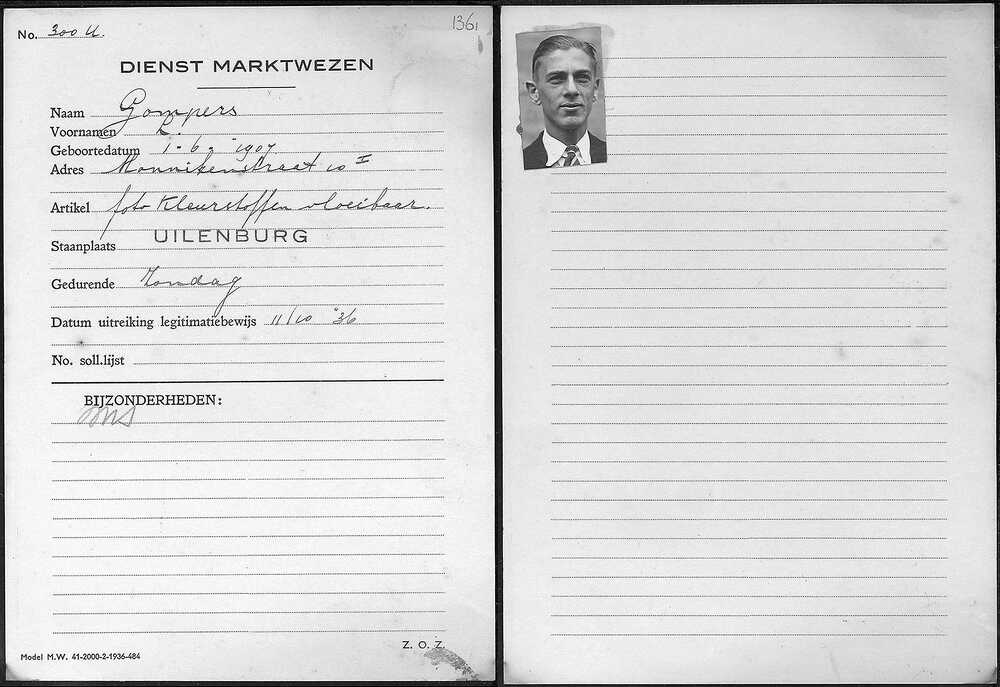 1361
No. 300 U.
DIENST MARKTWEZEN
Naam Gompers
Voornamen L.
Geboortedatum 1-6-1907
Adres Monnikenstraat 10 I
Artikel foto Kleurstoffen vloeibaar.
Staanplaats UILENBURG
Gedurende Zondag
Datum uitreiking legitimatiebewijs 11/10 '36
No. soll.lijst
BIJZONDERHEDEN:
Z. O. Z.
Model M.W. 41-2000-2-1936-484